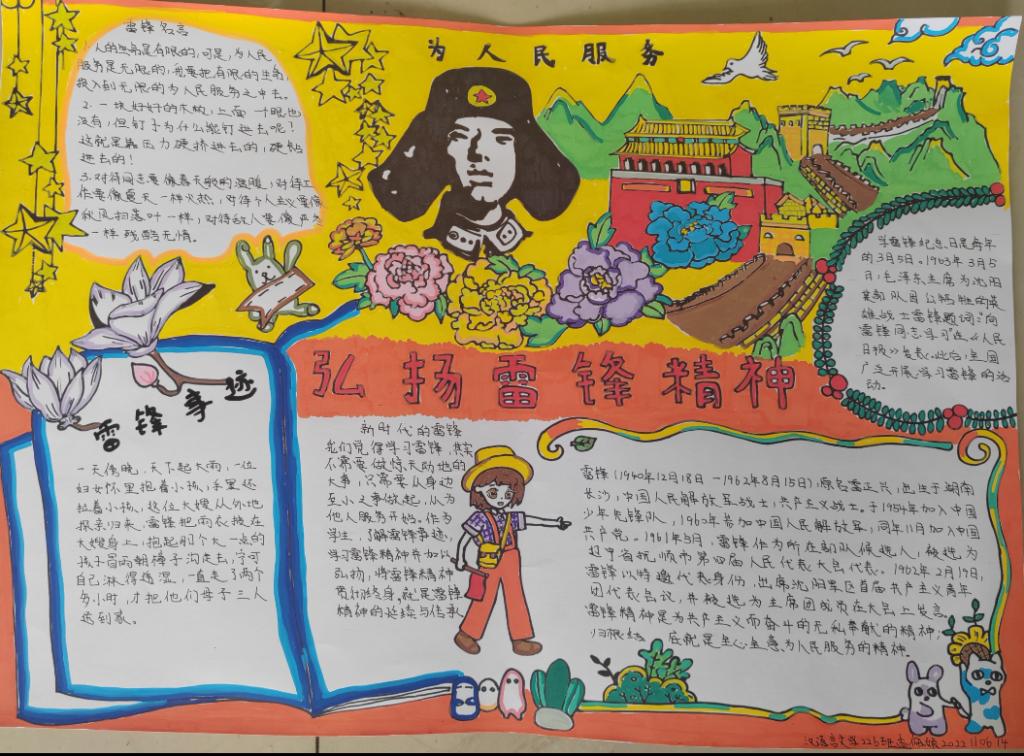 雷锋名言
1.人的生命是有限的,可是,为人民
服务是无限的,我要把有限的生命,
投入到无限的为人民服务之中去。
2.一块好好的木板,上面一个眼也
没有,但钉子为什么能钉进去呢!
这就是靠压力硬挤进去的,硬钻
进去的!
3.对待同志要像春天般的温暖,对待工
作要像夏天一样火热,对待个人主义要像
秋风扫落叶一样,对待敌人要像严冬
一样残酷无情。
为人民服务
学雷锋纪念日是每年
的3月5日。1963年3月5
日,毛泽东主席为沈阳
某部队因公牺牲的英
雄战士雷锋题词:“向
雷锋同志学习”在《人民
日报》发表。此后,全国
广泛开展学习雷锋的活
动。
弘扬雷锋精神
雷锋事迹
一天傍晚,天下起大雨,一位
妇女怀里抱着小孩,手里还
拉着小孩,这位大嫂从外地
探亲归来,雷锋把雨衣披在
大嫂身上,抱起那个大一点的
孩子冒雨朝樟子沟走去,宁可
自己淋得透湿,一直走了两个
多小时,才把他们母子三人
送到家。
新时代的雷锋
我们觉得学习雷锋,其实
不需要做惊天动地的
大事,只需要从身边
至小之事做起,从为
他人服务开始。作为
学生,了解雷锋事迹,
学习雷锋精神并加以
弘扬,将雷锋精神
贯彻终身,就是雷锋
精神的延续与传承
雷锋(1940年12月18日-1962年8月15日),原名雷正兴,出生于湖南
长沙,中国人民解放军战士,共产主义战士。于1954年加入中国
少年先锋队,1960年参加中国人民解放军,同年11月加入中国
共产党。1961年5月,雷锋作为所在部队候选人,被选为
辽宁省抚顺市第四届人民代表大会代表。1962年2月19日,
雷锋以特邀代表身份,出席沈阳军区首届共产主义青年
团代表会议,并被选为主席团成员在大会上发言。
雷锋精神是为共产主义而奋斗的无私奉献的精神,
归根结底就是全心全意为人民服务的精神。
汉语言文学226班 2022110614